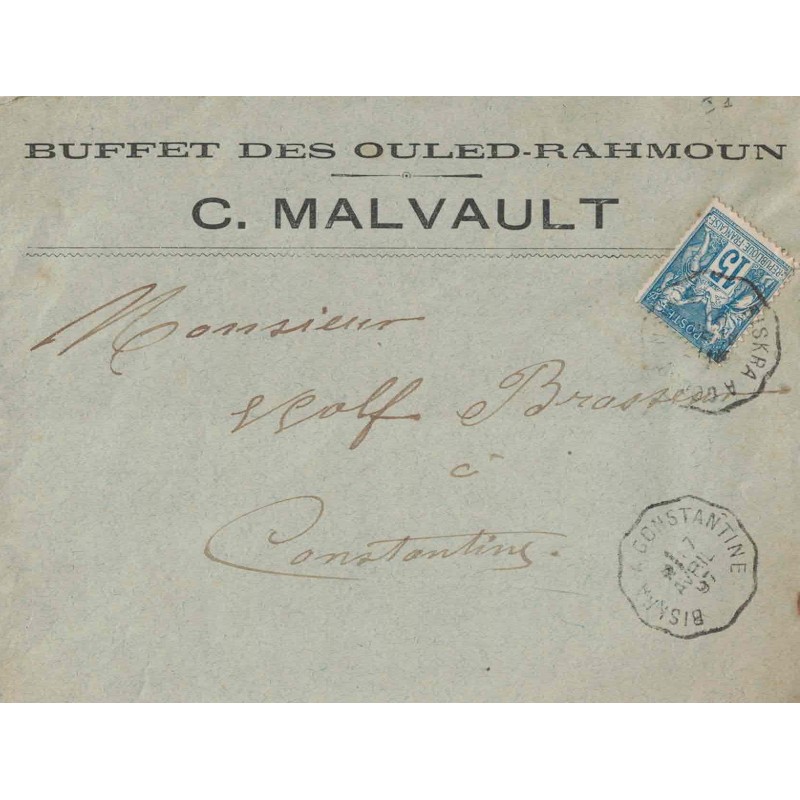 BUFFET DES OULED-RAHMOUN
C. MALVAULT
15
REPUBLIQUE FRANÇAISE
POSTES
BISKRA A
Monsieur
Wolf Brasseur
à
Constantine.
BISKRA A CONSTANTINE
7
AVRIL
95